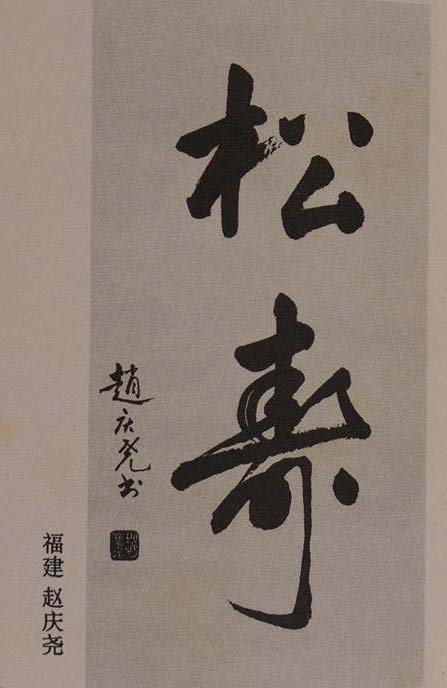 松寿
趙庆尧书
福建 赵庆尧